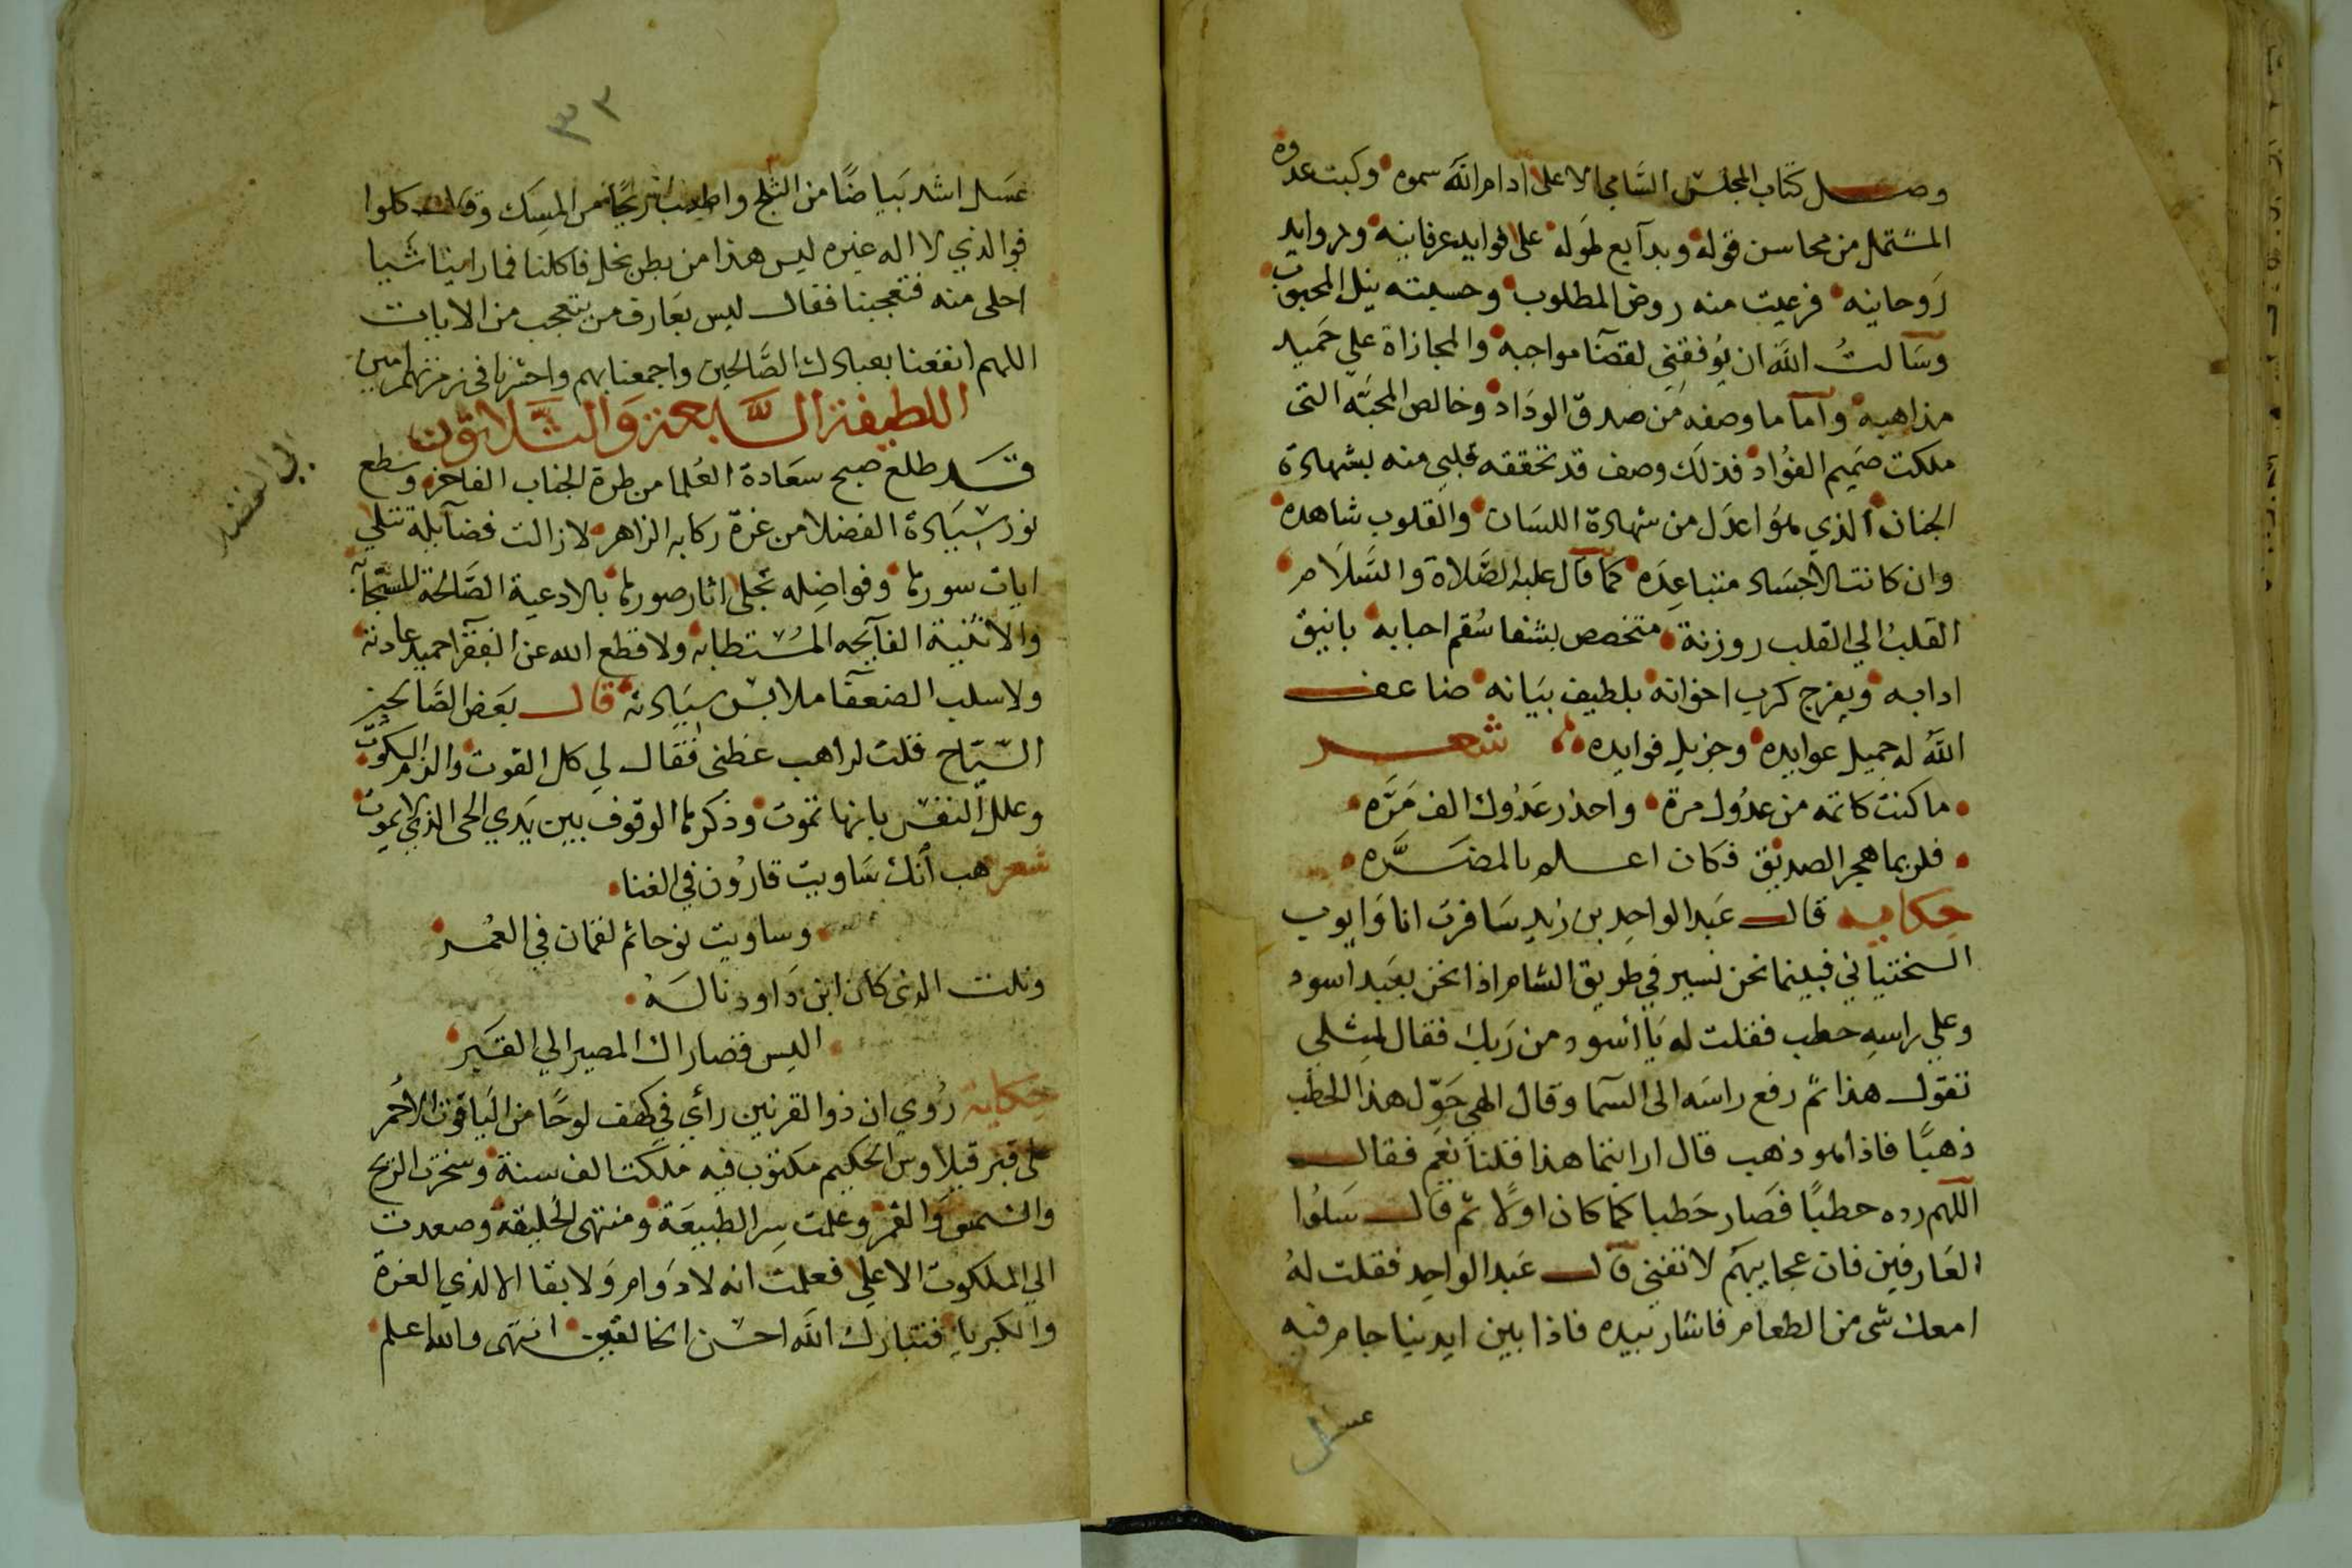 وصل كتاب المجلس السامي الاعلى ادام الله سموه وكبت عدوه
المشتمل من محاسن قوله وبدآيع طوله على فوايد عرفانيه وفروايد
روحانيه فرعيت منه روض المطلوب وحسبته نيل المحبوب
وسالت الله ان يوفقني لقضآ مواجبه والمجازاة علي حميد
مذاهبه وآما ما وصفه من صدق الوداد وخالص المحبه التي
ملكت صميم الفؤاد فذلك وصف قد تحققه قلبي منه بشهادة
الجنان الذي هو اعدل من شهادة اللسان والقلوب شاهده
وان كانت الاجساد متباعده كما قال عليه الصلاة والسلام
القلب الي القلب روزنة متخصص بشفا سقم احبابه بانيق
ادابه ويفرج كرب اخوانه بلطيف بيانه ضاعف
الله له جميل عوايده وجزيل فوايده شعر
ما كنت كاتمه من عدوك مرة واحذر عدوك الف مره
فلربما هجر الصديق فكان اعلم بالمضره
حكايه قال عبد الواحد بن زيد سافرت انا وايوب
السختياني فبينما نحن نسير في طريق الشام اذا نحن بعبد اسود
وعلي راسه حطب فقلت له يا اسود من ربك فقال لمثلي
تقول هذا ثم رفع راسه الى السما وقال الهي حول هذا الحطب
ذهبا فاذا هو ذهب قال ارايتما هذا قلنا نعم فقال
اللهم رده حطبا فصار حطبا كما كان اولا ثم قال سلوا
العارفين فان عجايبهم لا تفنى قال عبد الواحد فقلت له
امعك شي من الطعام فاشار بيده فاذا بين ايدينا جام فيه
عسل
٣٣
عسل اشد بياضا من الثلج واطيب ريحا من المسك وقال كلوا
فو الذي لا اله غيره ليس هذا من بطن نحل فاكلنا فما راينا شيا
احلى منه فتعجبنا فقال ليس بعارف من يتعجب من الايات
اللهم انفعنا بعبادك الصالحين واجمعنا بهم واحشرنا في زمرتهم امين
اللطيفة السابعة والثلاثون
قد طلع صبح سعادة العلما من طرة الجناب الفاخر وسطع
نور سيادة الفضلا من غرة ركابه الزاهر لا زالت فضآيله تتلي
ايات سورها وفواضله تجلى اثار صورها بالادعية الصالحة المستجابه
والاثنية الفآيحه المستطابه ولا قطع الله عن الفقرآ حميد عادته
ولا سلب الضعفآ ملابس سيادته قال بعض الصالحين
السياح قلت لراهب عظني فقال لي كل القوت والزم السكوت
وعلل النفس بانها تموت وذكرها الوقوف بين يدي الحي الذي لا يموت
شعر هب انك ساويت قارون في الغنا
وساويت نوحا ثم لقمان في العمر
ونلت الذي كان ابن داود ناله
اليس قصاراك المصير الي القبر
حكاية روي ان ذو القرنين رأي في كهف لوحا من الياقوت الاحمر
على قبر قيلاوس الحكيم مكتوب فيه ملكت الف سنة وسخرت الريح
والشمس والقمر وعلمت سر الطبيعة ومنتهى الخليقه وصعدت
الي الملكوت الاعلي فعلمت انه لا دوام ولا بقا الا لذي العزة
والكبريا فتبارك الله احسن الخالقين انتهى والله اعلم